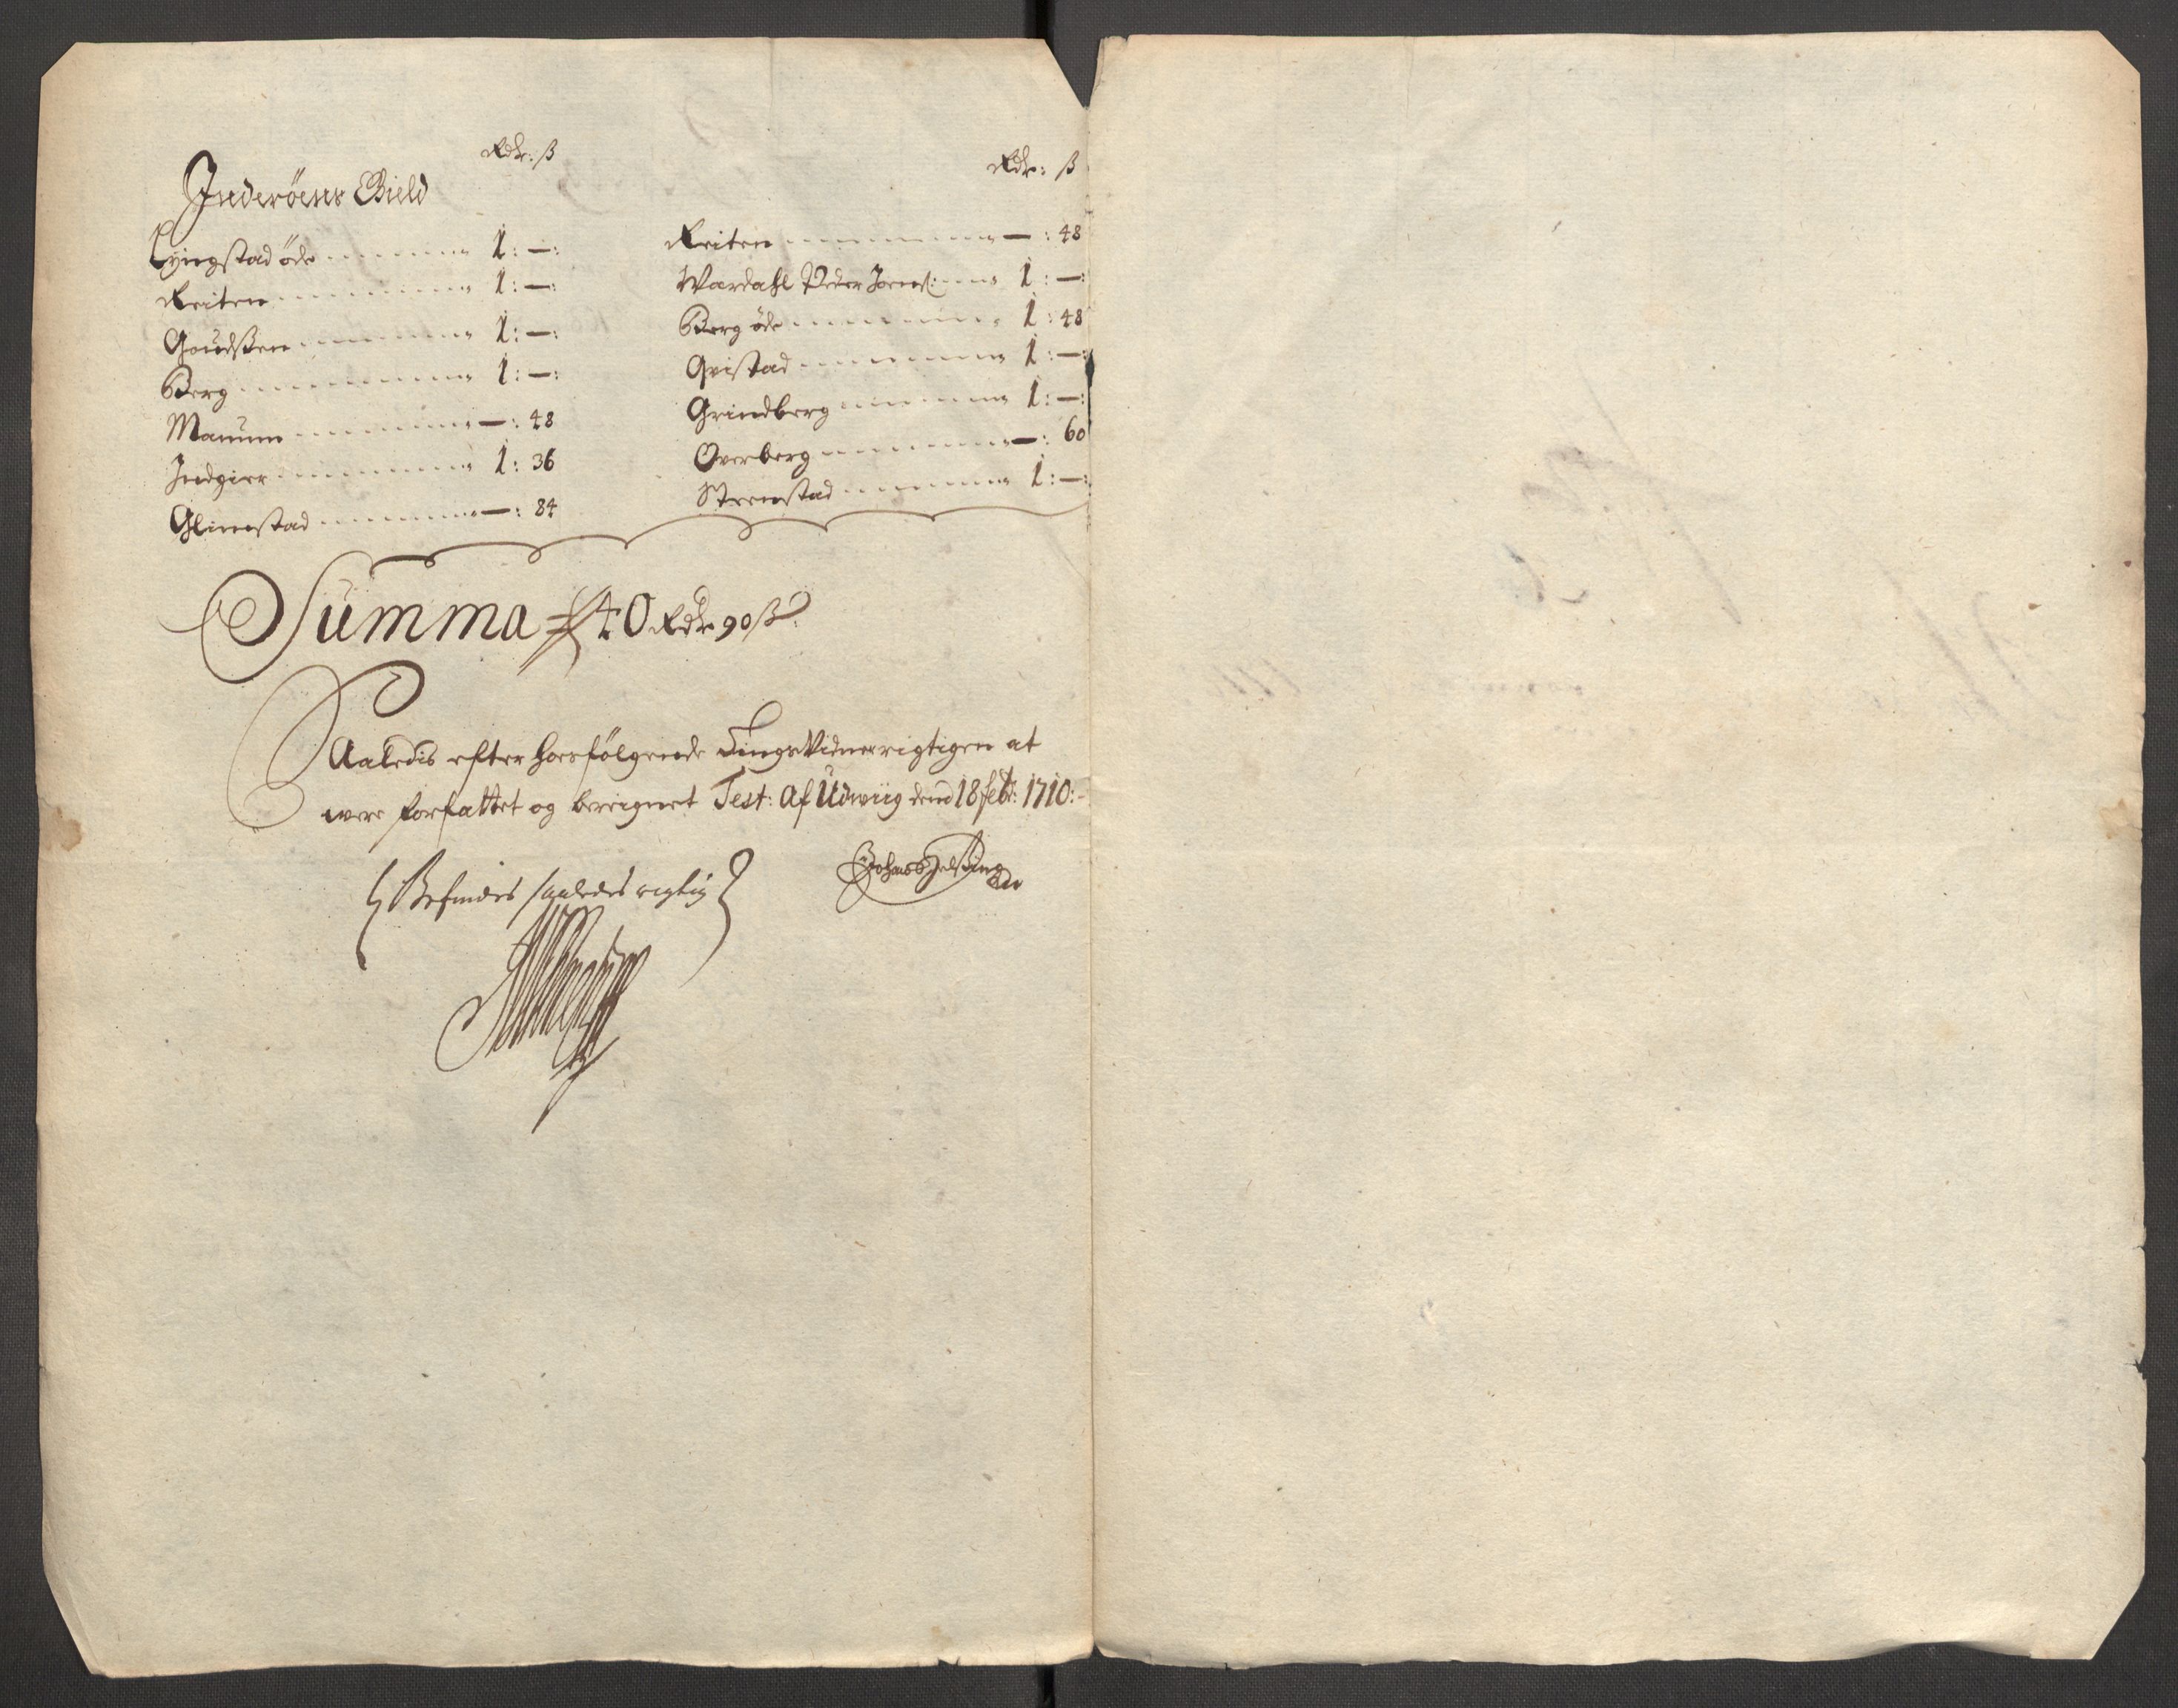 Rdr: ß
Inderöens Gield
Lyngstad öde 1: —:
Reiten 1: —:
Goudßen 1: —:
Berg 1: —:
Manum —: 48
Indgier 1: 36
Glimstad —: 84
Rdr: ß
Reiten —: 48
Wardahl Peder Joens: 1: —:
Berg öde 1: 48
Qvistad 1: —:
Grindberg 1: —:
Overberg —: 60
Strenstad 1: —:
Summa 40 Rdr 90 ß
Saaledis efter hosfölgende Tings Vidner rigtigen at
were forfattet og bereignet Test: Af Udwiig dend 18 febr: 1710:
Befindes saaledes rigtig